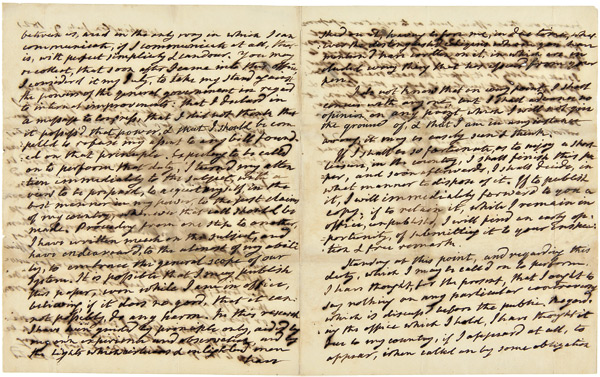 between us, and in the only way in which I can
communicate, if I communicate at all, that
is, with perfect simplicity & candour. You may
recollect, that soon after I came into this office,
I consider'd it my duty, to take my stand against
the power of the general government in regard
to internal improvements: that I declar'd in
a message to Congress, that I did not think that
it possess'd that power, & that I should be com-
pell'd to refuse my assent to any bill found-
ed on that principle. Expecting to be called
on to perform that duty, I turn'd my atten-
tion immediately to the subject, with a
view to be prepar'd, to acquit myself, in the
best manner in my power, to the just claims
of my country, when ever that call should be
made. Proceeding from one step to another,
I have written much on the subject, and
have endeavoured to the utmost of my abili-
ty, to embrace the general scope of our
system. It is possible that I may publish
this paper, even while I am in office,
believing if it does no good, that it can
not possibly do any harm. In this research
I have been guided by principle only, and by
my own experience and observation, and by
the lights which virtuous & enlightened men
have
shed
pens.
I do not know that on any point, I shall
concur with any one, but I shall advance no
opinion on any point, which I will not give
the grounds of, & that I am in any instance
wrong it may be easily seen I think.
If I shall be so fortunate, as to enjoy a short
leisure, in the country, I shall finish this pa-
per, and soon afterwards, I shall decide in
what manner to dispose of it. If to publish
it, I will immediately forward to you a
copy; if to retain it, while I remain in
office, unpublished, I will find an early op-
portunity, of submitting it to your inspec-
tion & free remark.
Standing at this point, and regarding this
duty, which I may be called on to perform,
I have thought, for the present, that I ought to
say nothing on any particular controversy
which is discuss'd before the public. Regard-
ing the office which I hold, I have thought it
due to my country, if I appeared at all, to
appear, when called on by some obligation